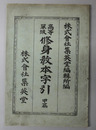 株式會社集英堂編輯所編
高等
小學
修身教本字引
甲篇
株式會社集英堂